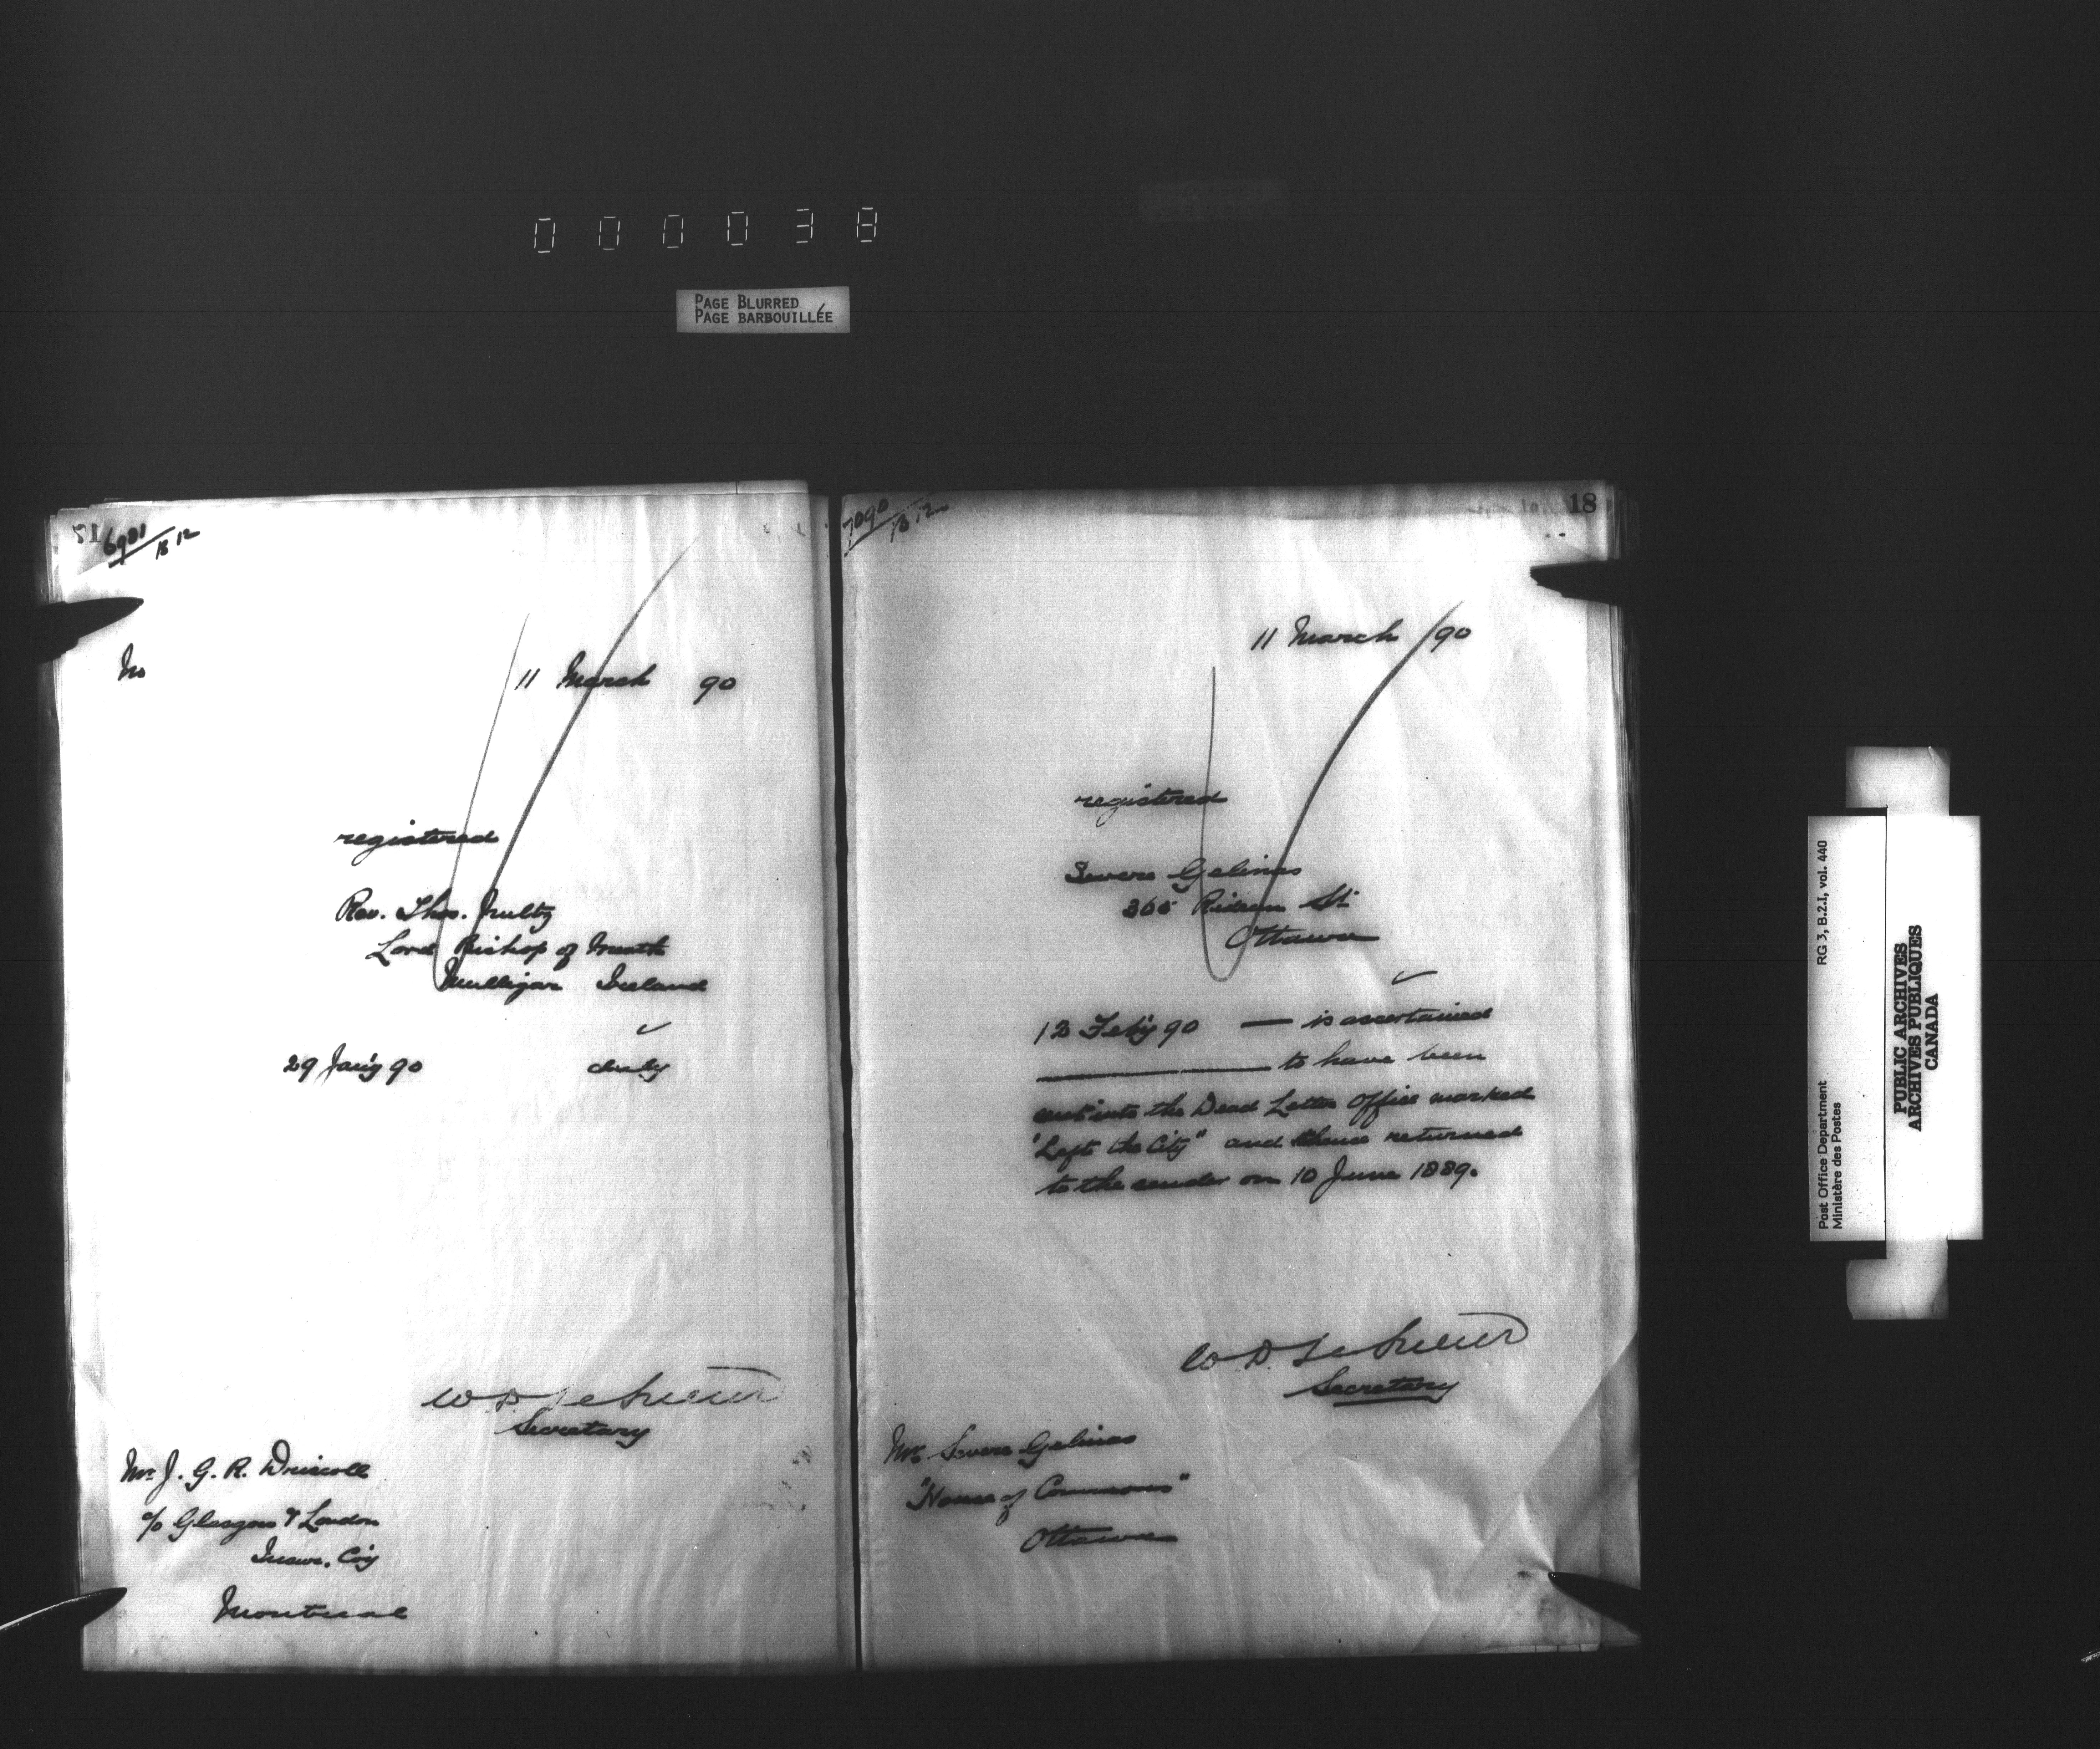 000038
PAGE BLURRED
PAGE BARBOUILLÉE
17
6981/B 12
No
11 March 90
registered
Rev. Thos. Nulty
Lord Bishop of Meath
Mullingar Ireland
29 Jan'y 90 duly
W D LeSueur
Secretary
Mr. J. G. R. Driscoll
c/o Glasgow & London
Insur. Co'y
Montreal
7090/B 12
18
11 March /90
registered
Severe Gelinas
365 Rideau St.
Ottawa
12 Feb'y 90 — is ascertained
to have been
sent into the Dead Letter Office marked
"Left the City" and thence returned
to the sender on 10 June 1889.
W D LeSueur
Secretary
Mr. Severe Gelinas
"House of Commons"
Ottawa
Post Office Department
Ministère des Postes
RG 3, B.2.I, vol. 440
PUBLIC ARCHIVES
ARCHIVES PUBLIQUES
CANADA